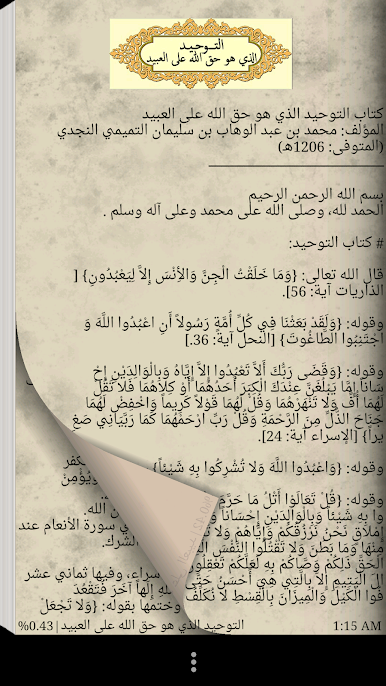 التوحيد
الذي هو حق الله على العبيد
كتاب التوحيد الذي هو حق الله على العبيد
المؤلف: محمد بن عبد الوهاب بن سليمان التميمي النجدي
(المتوفى: 1206هـ)
بسم الله الرحمن الرحيم
الحمد لله، وصلى الله على محمد وعلى آله وسلم .
# كتاب التوحيد:
قال الله تعالى: {وَمَا خَلَقْتُ الْجِنَّ وَالْأِنْسَ إِلاَّ لِيَعْبُدُونِ} [
الذاريات آية: 56].
وقوله: {وَلَقَدْ بَعَثْنَا فِي كُلِّ أُمَّةٍ رَسُولاً أَنِ اعْبُدُوا اللَّهَ وَ
اجْتَنِبُوا الطَّاغُوتَ} [النحل آية: 36.]
وقوله: {وَقَضَى رَبُّكَ أَلاَّ تَعْبُدُوا إِلاَّ إِيَّاهُ وَبِالْوَالِدَيْنِ إِحْ
سَاناً إِمَّا يَبْلُغَنَّ عِنْدَكَ الْكِبَرَ أَحَدُهُمَا أَوْ كِلاهُمَا فَلا تَقُلْ
لَهُمَا أُفٍّ وَلا تَنْهَرْهُمَا وَقُلْ لَهُمَا قَوْلاً كَرِيماً وَاخْفِضْ لَهُمَا
جَنَاحَ الذُّلِّ مِنَ الرَّحْمَةِ وَقُلْ رَبِّ ارْحَمْهُمَا كَمَا رَبَّيَانِي صَغِ
يراً} [الإسراء آية: 24].
وقوله: {وَاعْبُدُوا اللَّهَ وَلا تُشْرِكُوا بِهِ شَيْئاً}
وقوله: {قُلْ تَعَالَوْا أَتْلُ مَا حَرَّمَ
وا بِهِ شَيْئاً وَبِالْوَالِدَيْنِ إِحْسَاناً
إِمْلاقٍ نَحْنُ نَرْزُقُكُمْ وَإِيَّاهُمْ وَلا سورة الأنعام عند
مِنْهَا وَمَا بَطَنَ وَلا تَقْتُلُوا النَّفْسَ الشرك.
الْحَقِّ ذَلِكُمْ وَصَّاكُمْ بِهِ لَعَلَّكُمْ تَعْقِلُونَ
الَ الْيَتِيمِ إِلاَّ بِالَّتِي هِيَ أَحْسَنُ حَتَّى وفيها ثماني عشر
فُوا الْكَيْلَ وَالْمِيزَانَ بِالْقِسْطِ لا نُكَلِّفُ إِلَهاً آخَرَ فَتَقْعُدَ
وختمها بقوله: {وَلا تَجْعَلْ
1:15 AM التوحيد الذي هو حق الله على العبيد | %0.43